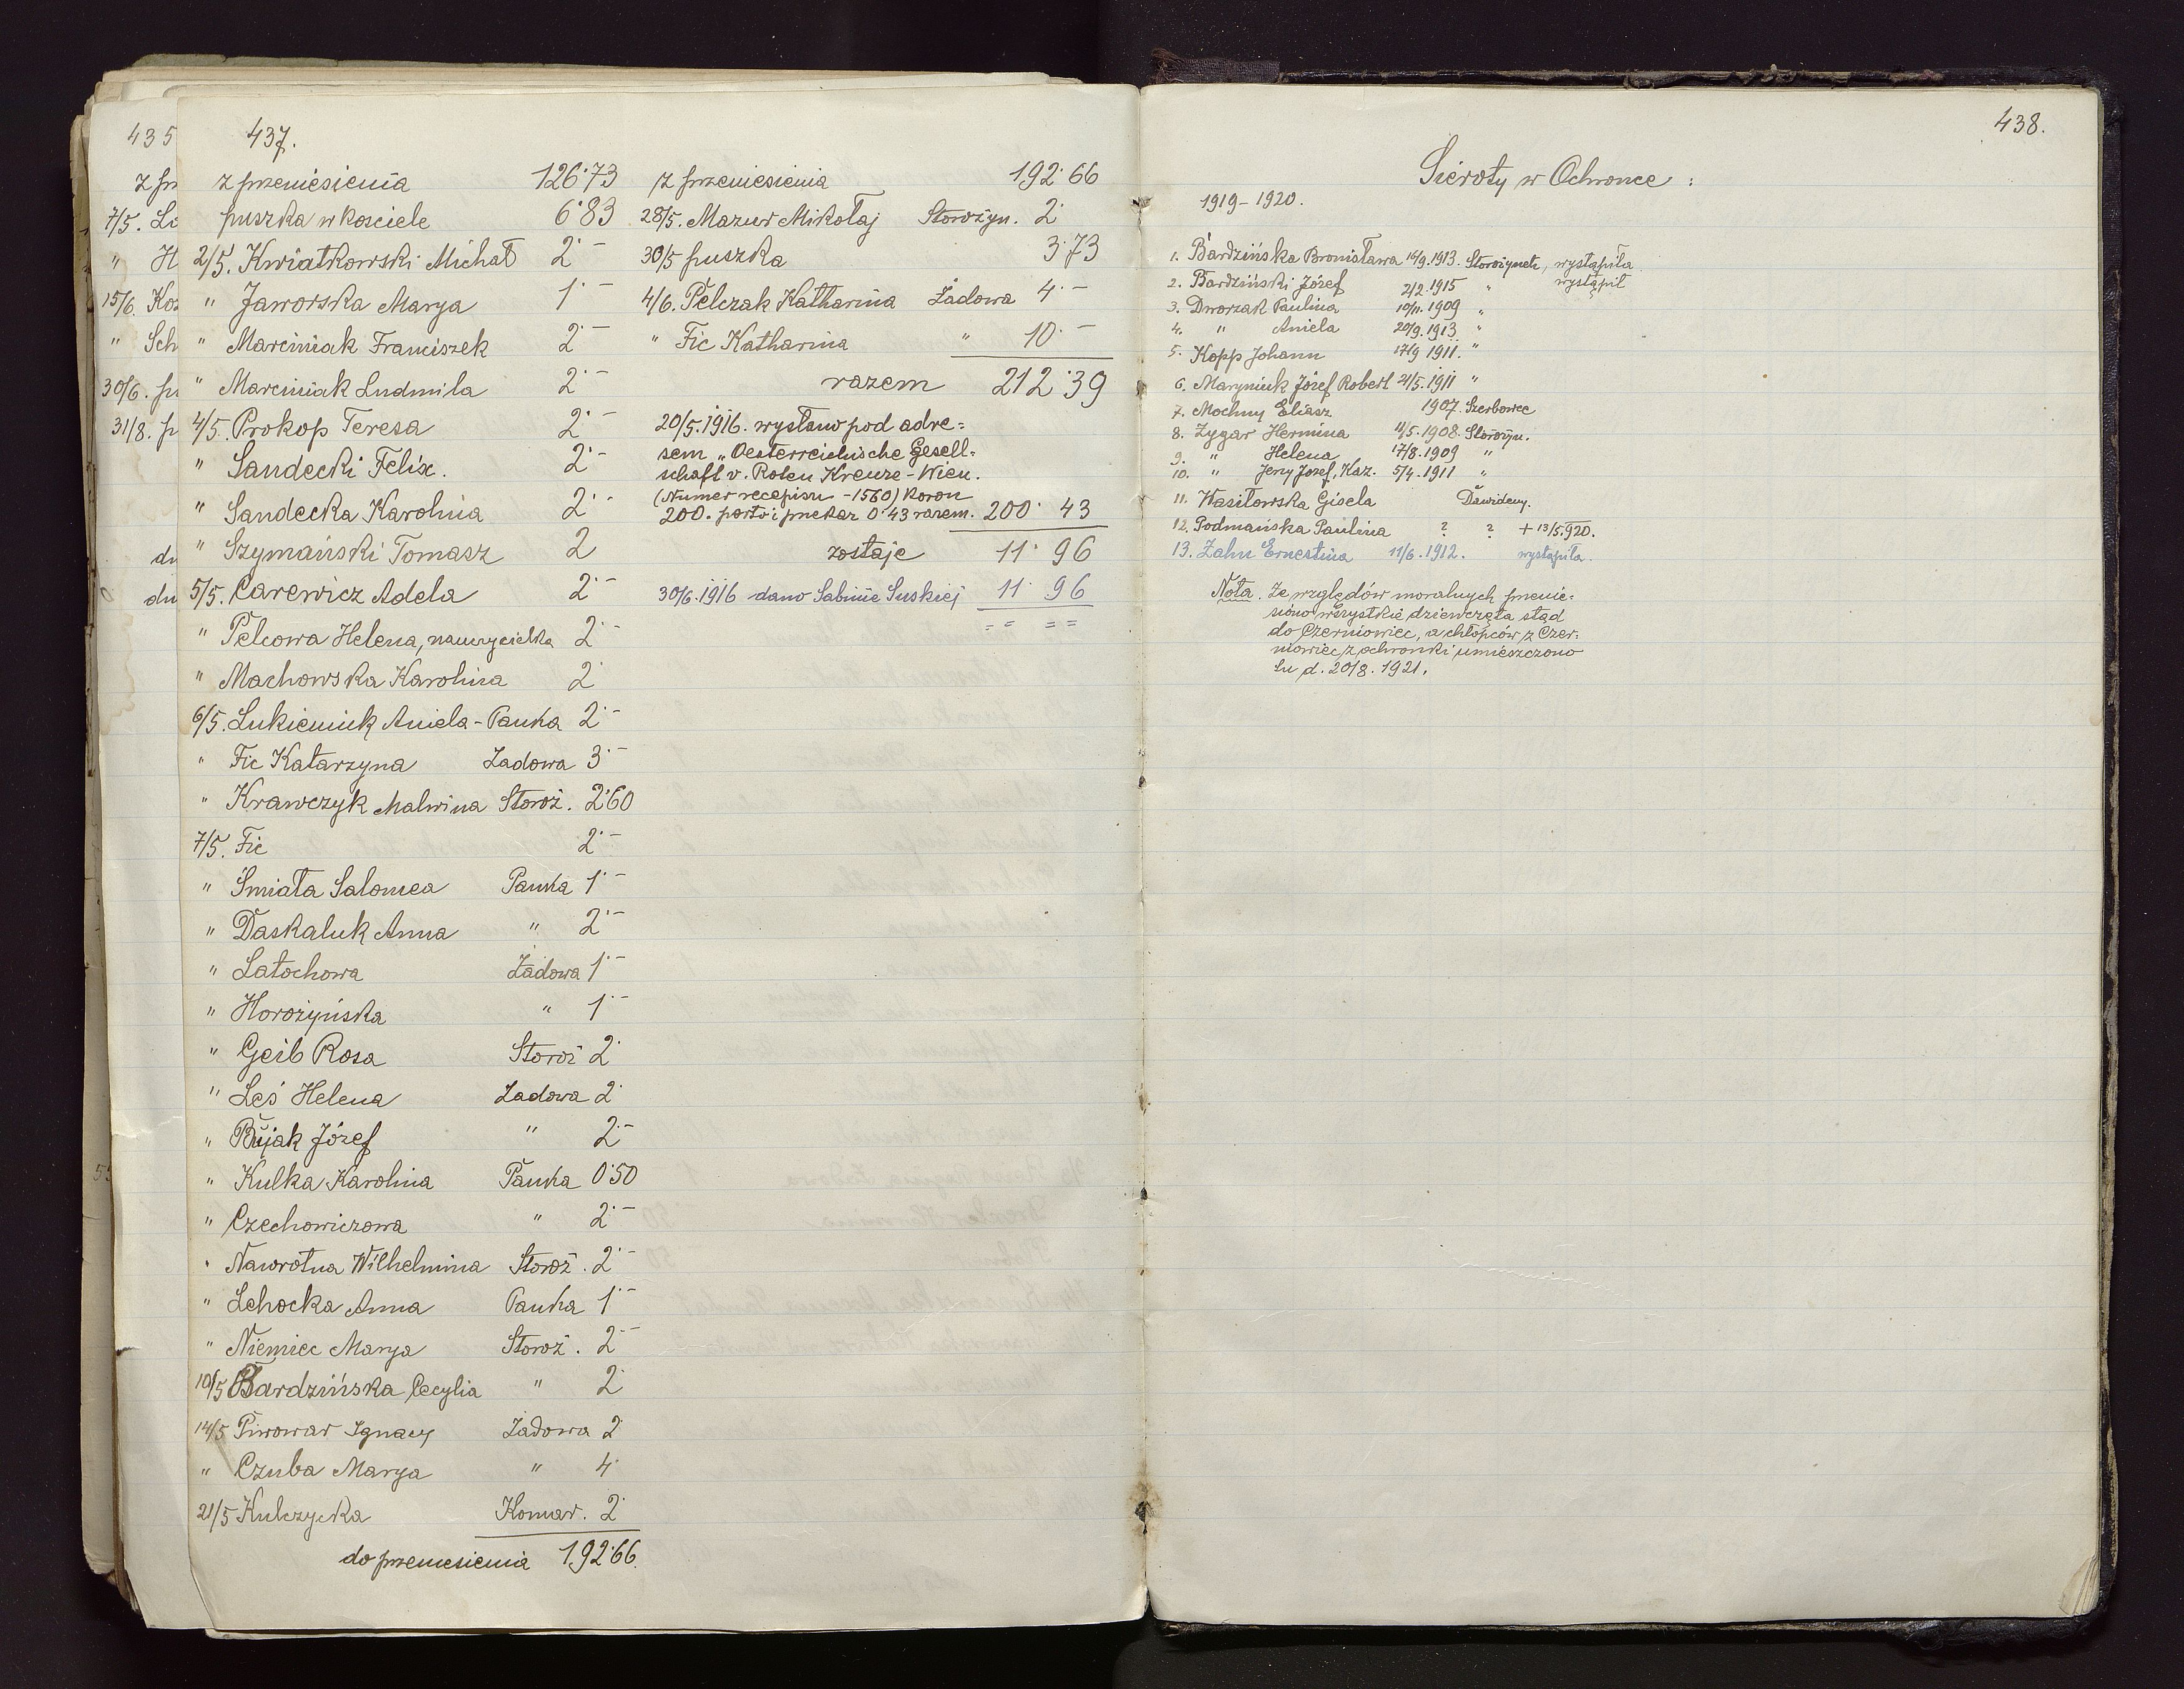 435
z prz
7/5. Li
" H
15/6. Koz
" Sch
30/6. pu
31/8. p
du
du
437.
z przeniesienia 126·73
puszka w kosciele 6·83
2/5. Kwiatkowski Michał 2·-
" Jaworska Marya 1·-
" Marciniak Franciszek 2·-
" Marciniak Ludmila 2·-
4/5. Prokop Teresa 2·-
" Sandecki Felix. 2·-
" Sandecka Karolina 2·-
" Szymański Tomasz 2
5/5. Carewicz Adela 2·-
" Pelcowa Helena, nauczycielka 2·-
" Machowska Karolina 2·
6/5. Lukieniuk Aniela - Panka 2·-
" Fic Katarzyna Zadowa 3·-
" Krawczyk Malwina Storoż. 2·60
7/5. Fic 2·-
" Smiata Salomea Panka 1·-
" Daskaluk Anna " 2·-
" Latochowa Żadowa 1·-
" Horożyńska " 1·-
" Geib Rosa Storoż 2·
" Leś Helena Zadowa 2·
" Bujak Józef " 2·-
" Kulka Karolina Panka 0·50
" Czechowiczowa " 2·-
" Nawrotna Wilhelmina Storoż. 2·-
" Lchocka Anna Panka 1·-
" Niemiec Marya Storoż. 2·-
10/5 Bardzińska Cecylia " 2·
14/5 Piwowar Ignacy Zadowa 2·
" Czuba Marya " 4·
21/5 Kulczycka Komar. 2·
do przeniesienia 192·66.
z przeniesienia 192·66
28/5. Mazur Mikołaj Storożyn. 2·
30/5 puszka 3·73
4/6. Pelczak Katharina Żadowa 4·-
" Fic Katharina " 10·-
razem 212·39
20/5.1916. wysłano pod adre=
sem „Oesterreichische Gesell=
schaft v. Roten Kreuze - Wien.
(Numer recepisu - 1560) koron
200. porto i przekaz 0·43 razem. 200· 43
zostaje 11· 96
30/6.1916 dano Sabinie Suskiej 11· 96
== ==
438.
Sieroty w Ochronce :
1919-1920.
1. Bardzińska Bronisława 14/9.1913. Storożynetz, wystąpiła.
2. Bardziński Józef 2/2.1915 " wystąpił
3. Dworzak Paulina 10/11.1909 "
4. " Aniela 20/9.1913. "
5. Kopp Johann 17/9 1911. "
6. Maryniuk Józef Robert 21/5.1911 "
7. Mochny Eliasz 1907. Szerbowec
8. Zygar Hermina 11/5.1908. Storożyn.
9. " Helena 17/8.1909 "
10. " Jerzy Jozef, Kaz. 5/4.1911 "
11. Wasiłowska Gisela Dawideny.
12. Podmańska Paulina ? ? + 13/5.920.
13. Zahn Ernestina 11/6.1912. wystąpiła.
Nota. Ze względów moralnych przenie=
siono wszystkie dziewczęta stąd
do Czerniowiec, a chłopców z Czer=
niowiec z ochronki umieszczono
tu d. 20/8. 1921.